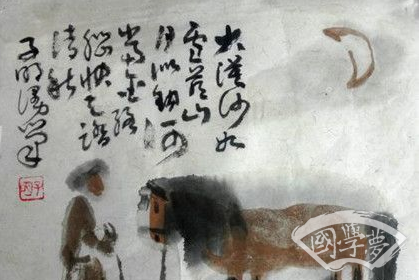 大漠沙如
雪燕山
月似钩何
当金络
脑快走踏
清秋
國學夢